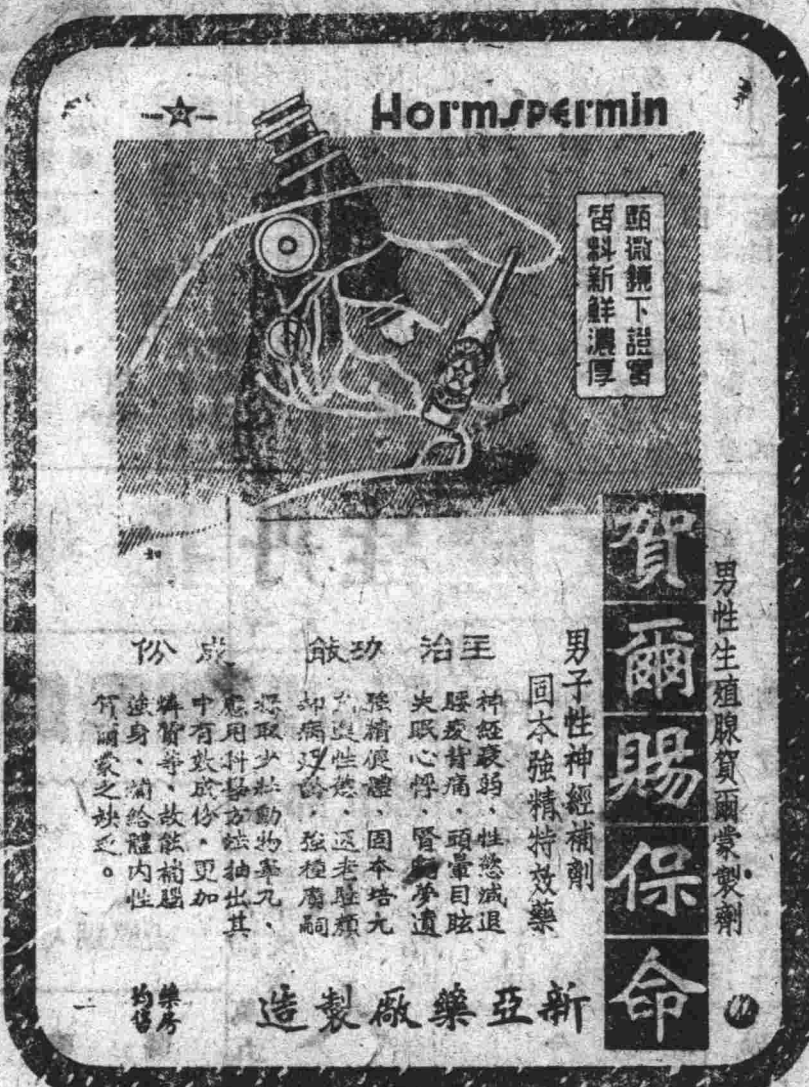 TRADE MARK
Hormspermin
顯微鏡下證實
質料新鮮濃厚
男性生殖腺賀爾蒙製劑
賀爾賜保命
男子性神經補劑
固本強精特效藥
主治
神經衰弱、性慾減退
腰痠背痛、頭暈目眩
失眠心悸、腎虧夢遺
功能
強精健體、固本培元
性慾、返老駐顏
却病延齡、強種廣嗣
成份
採取少壯動物睾丸、
應用科學方法抽出其
中有效成份、更加
燐質等、故能補腦
強身、補給體內性
賀爾蒙之缺乏。
新亞藥廠製造
藥房
均售
一